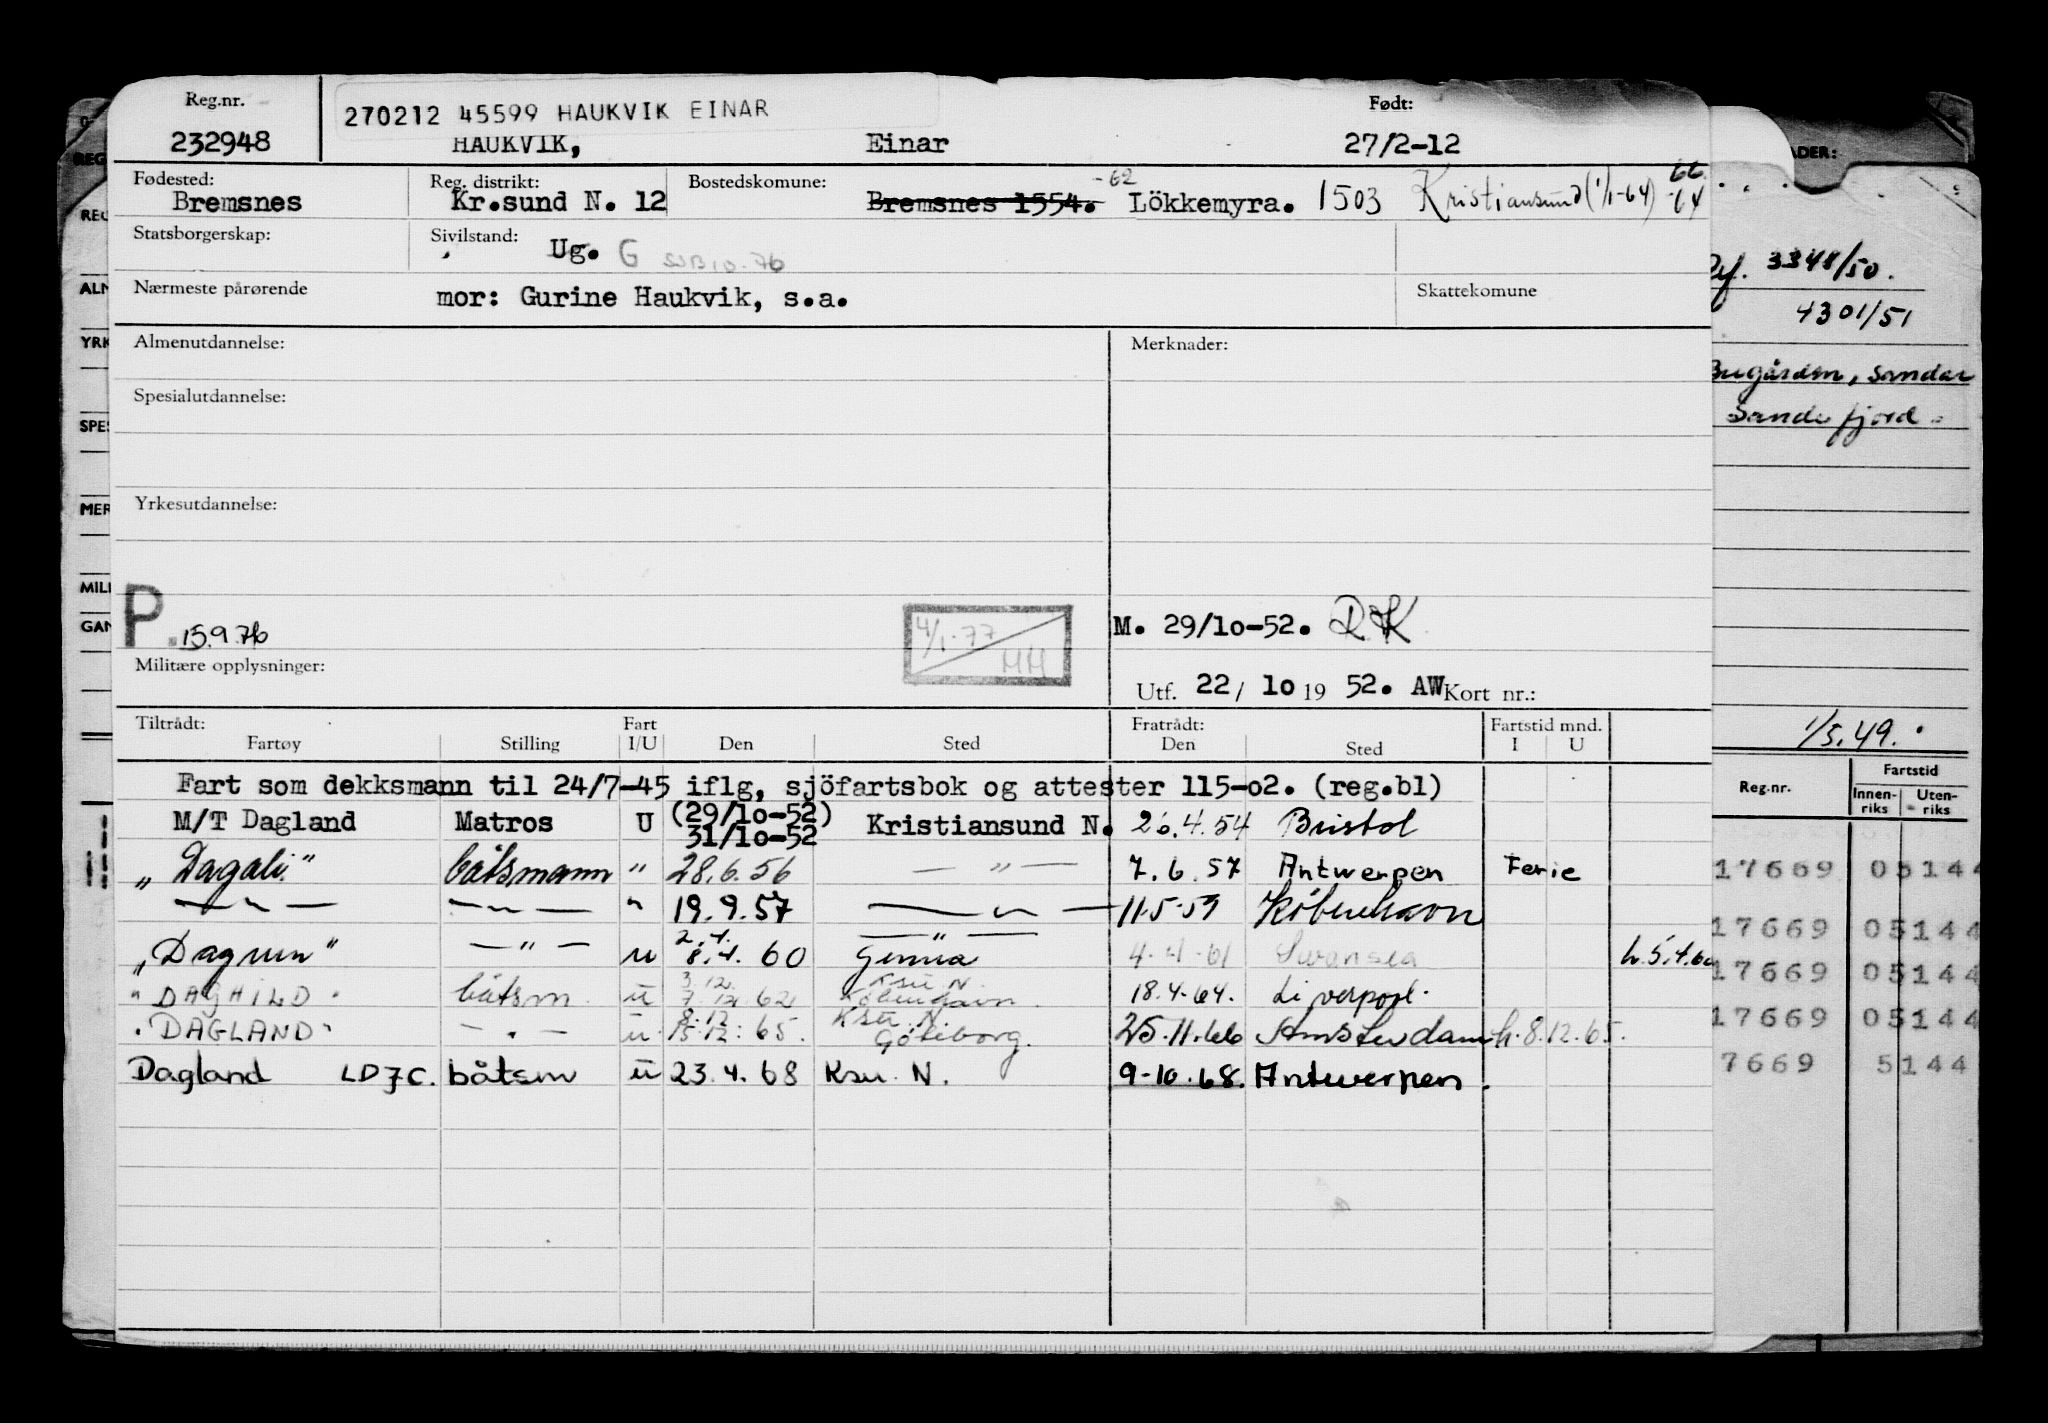 Reg.nr. Født:
270212 45599 HAUKVIK EINAR
232948 HAUKVIK, Einar 27/2-12
Fødested: Reg. distrikt: Bostedskomune: -62 66
Bremsnes Kr.sund N. 12 Bremsnes 1554. Lökkemyra. 1503 Kristiansund (1/1-64) -64
Statsborgerskap: Sivilstand: Ug. G
Nærmeste pårørende mor: Gurine Haukvik, s.a. Skattekomune
Almenutdannelse: Merknader:
Spesialutdannelse:
Yrkesutdannelse:
P. 15.9.76 4/1-77 HH M. 29/10-52.
Militære opplysninger: Utf. 22/ 10 19 52. AW Kort nr.:
Tiltrådt: Fart Fratrådt: Fartstid mnd.
Fartøy Stilling I/U Den Sted Den Sted I U
Fart som dekksmann til 24/7-45 iflg, sjöfartsbok og attester 115-02. (reg.bl)
M/T Dagland Matros U (29/10-52) 31/10-52 Kristiansund N. 26.4.54 Bristol
"Dagali" båtsmann " 28.6.56 — " — 7.6.57 Antwerpen Ferie
— " — — " — " 19.9.57 — " — 11.5.59 København
"Dagrun" — " — u 2.4. 8.4. 60 — " — Genua 4.4.61 Swansea h.5.4.60
"DAGHILD" båtsm. u 3.12. 7.12.62 Ksu N. København. 18.4.64. Liverpool.
"DAGLAND" — " — u. 8.12 15.12.65. Ksu. N. Göteborg. 25.11.66 Amsterdam h.8.12.65.
Dagland LDJC. båtsm u 23.4.68 Ksu. N. 9-10.68. Antwerpen.
REG
ALM
YRK
SPES
MER
MILI
GAN
ADER:
3348/50.
4301/51
Bugården, Sandar
Sandefjord.
1/5.49.
Reg.nr. Fartstid
Innen-riks Uten-riks
17669 05144
17669 05144
17669 05144
17669 05144
7669 5144